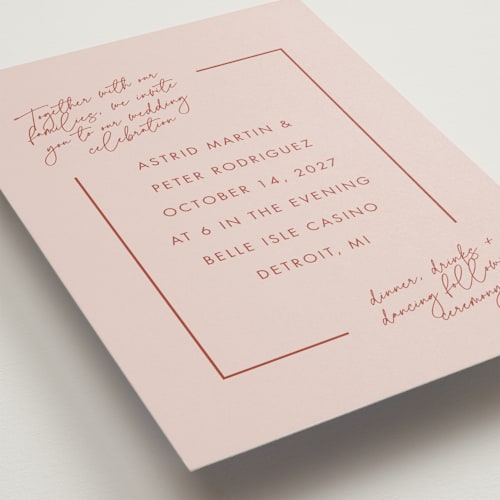 Together with our
families, we invite
you to our wedding
celebration
ASTRID MARTIN &
PETER RODRIGUEZ
OCTOBER 14, 2027
AT 6 IN THE EVENING
BELLE ISLE CASINO
DETROIT, MI
dinner, drinks +
dancing follow
ceremony